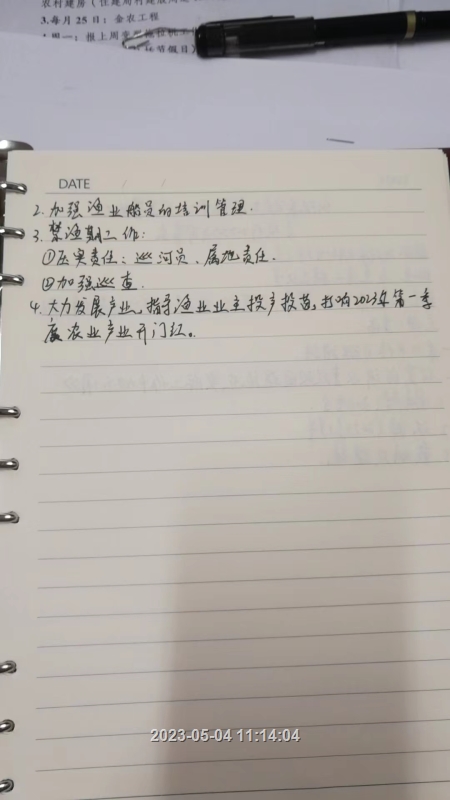 3.每月25日：金农工程
DATE / /
2.加强渔业船员的培训管理.
3.禁渔期工作：
①压实责任：巡河员、属地责任.
②加强巡查.
4.大力发展产业，指导渔业业主投产投苗，打响2023年第一季
度农业产业开门红。
2023-05-04 11:14:04